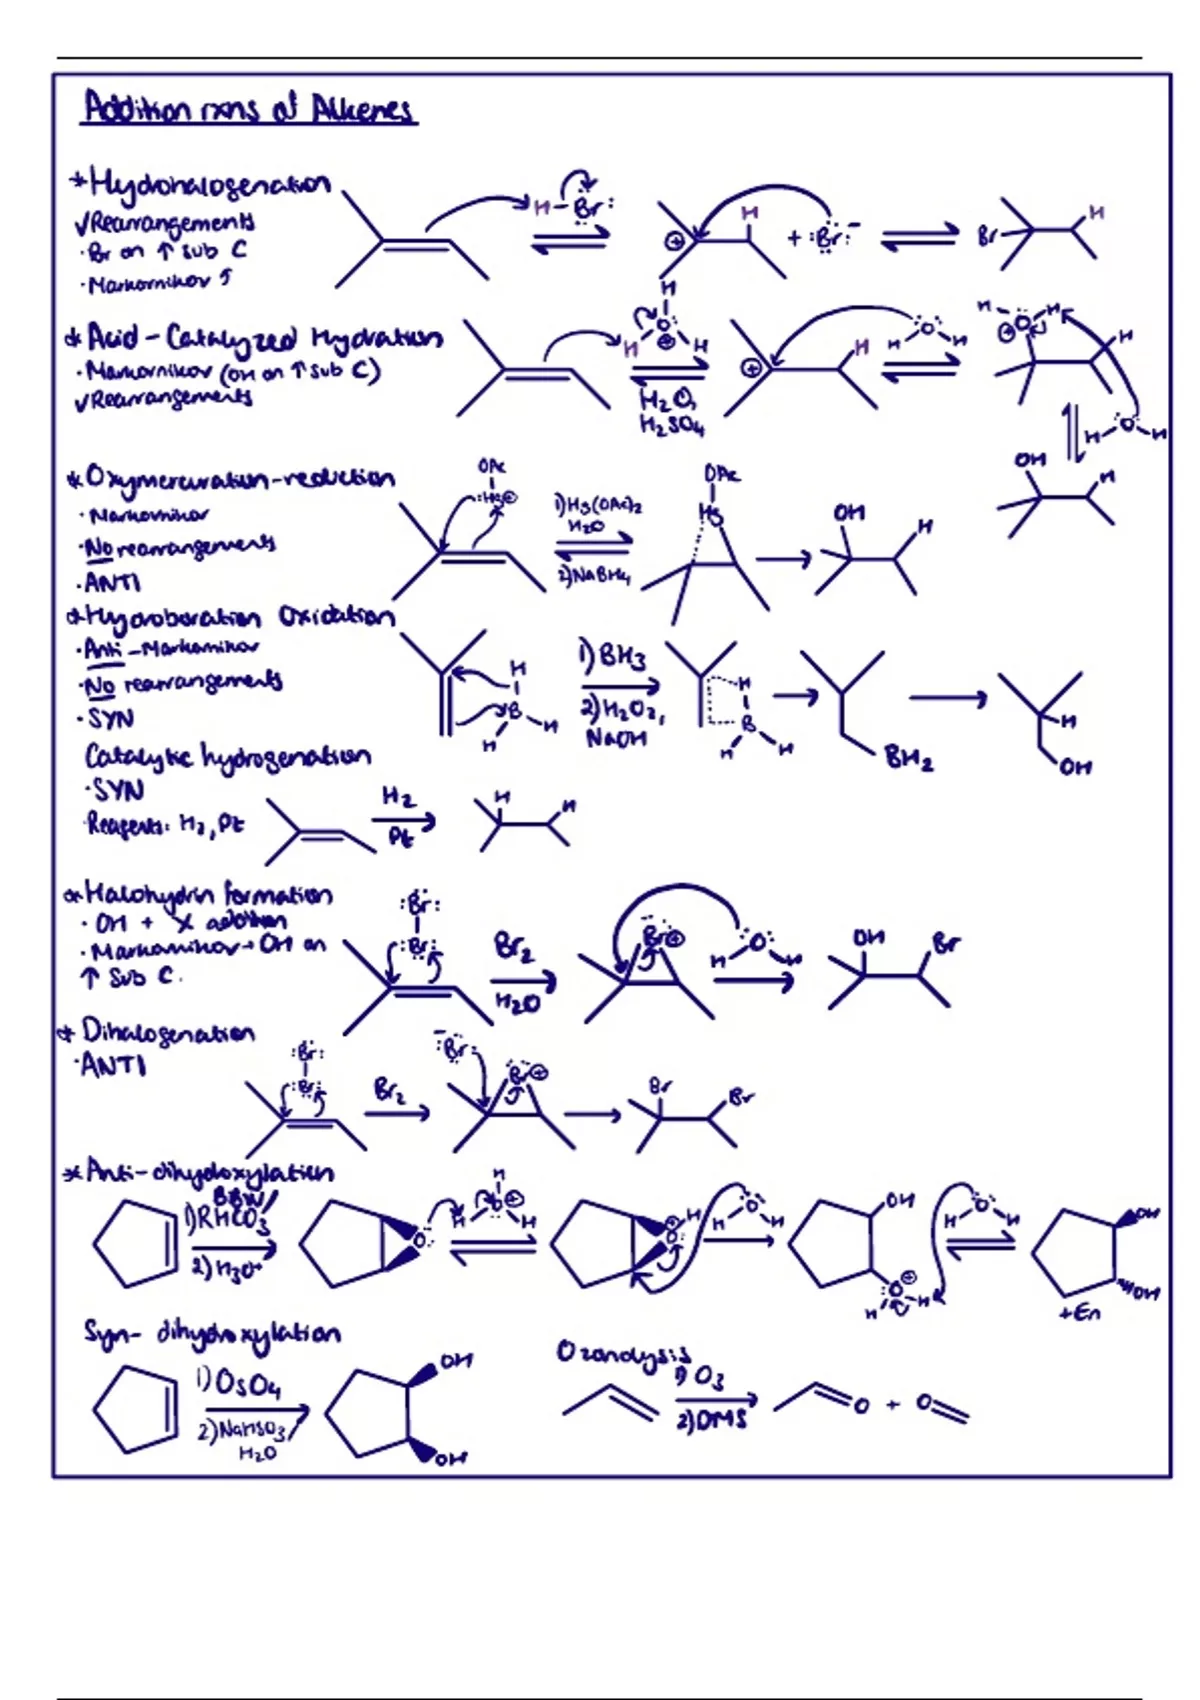 Addition rxns of Alkenes
*Hydrohalogenation
✓Rearrangements
· Br on ↑ sub C
· Markornikov ↑
H-Br:
H
⊕
+ :Br:⁻
Br
H
* Acid-Catalyzed Hydration
· Markornikov (OH on ↑ sub C)
✓Rearrangements
H
O
H
⊕
H
H₂O,
H₂SO4
⊕
H
O
H
H
H
O
H
⊕
H
H
O
H
OH
H
* Oxymercuration-reduction
· Markovnikov
· No rearrangements
· ANTI
OAc
:Hg⊕
1)Hg(OAc)2
H₂O
2)NaBH4
OAc
Hg
OH
H
* Hydroboration Oxidation
· Anti-Markovnikov
· No rearrangements
· SYN
H
B
H
H
1) BH3
2)H₂O₂,
NaOH
H
B
H
H
BH2
H
OH
Catalytic hydrogenation
·SYN
·Reagents: H2, Pt
H2
Pt
H
H
* Halohydrin formation
· OH + X addition
· Markovnikov→OH on
↑ Sub C.
:Br:
:Br:
Br2
H2O
Br⊕
O
H
H
OH
Br
* Dihalogenation
·ANTI
:Br:
:Br:
Br2
⁻:Br:
Br⊕
Br
Br
* Anti-dihydoxylation
1)RHCO3
2)H3O⁺
O:
H
O⊕
H
H
⊕
O
H
O
H
H
OH
O⊕
H
H
O
H
H
OH
OH
+En
Syn- dihydroxylation
1)OsO4
2)NaHSO3/
H2O
OH
OH
Ozonolysis
1) O3
2)DMS
O + O